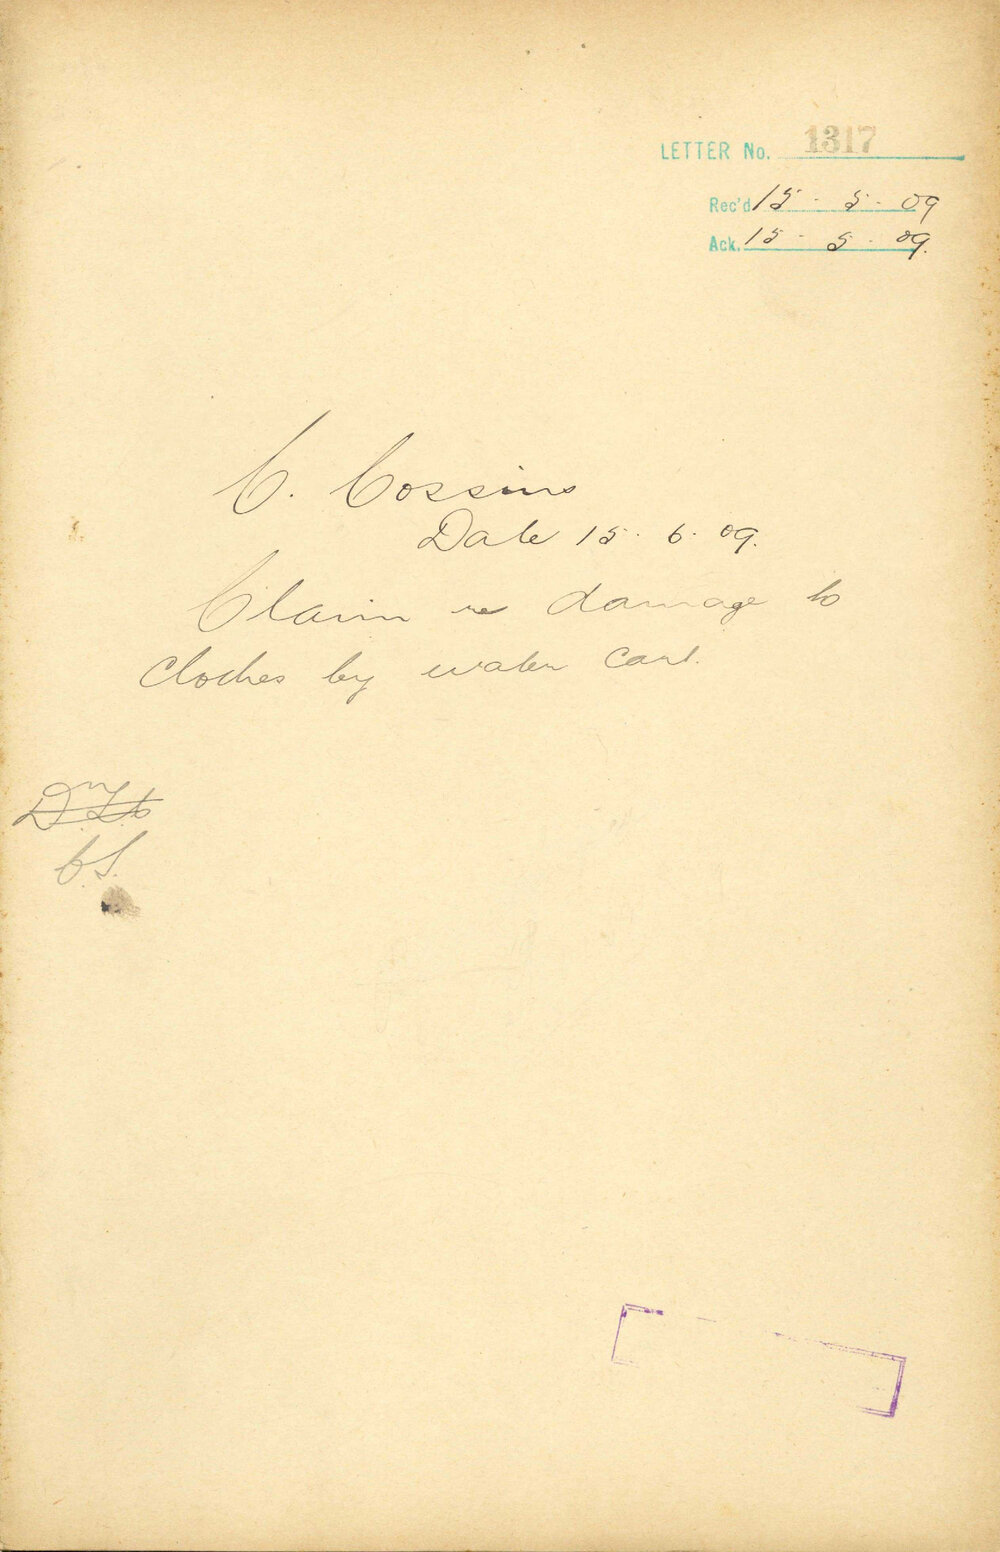 LETTER No. 1317
Rec'd 15 - 5 - 09
Ack. 15 - 5 - 09.
C. Cossins
Date 15. 6. 09.
Claim re damage to
Clothes by water Cart.
C.S.